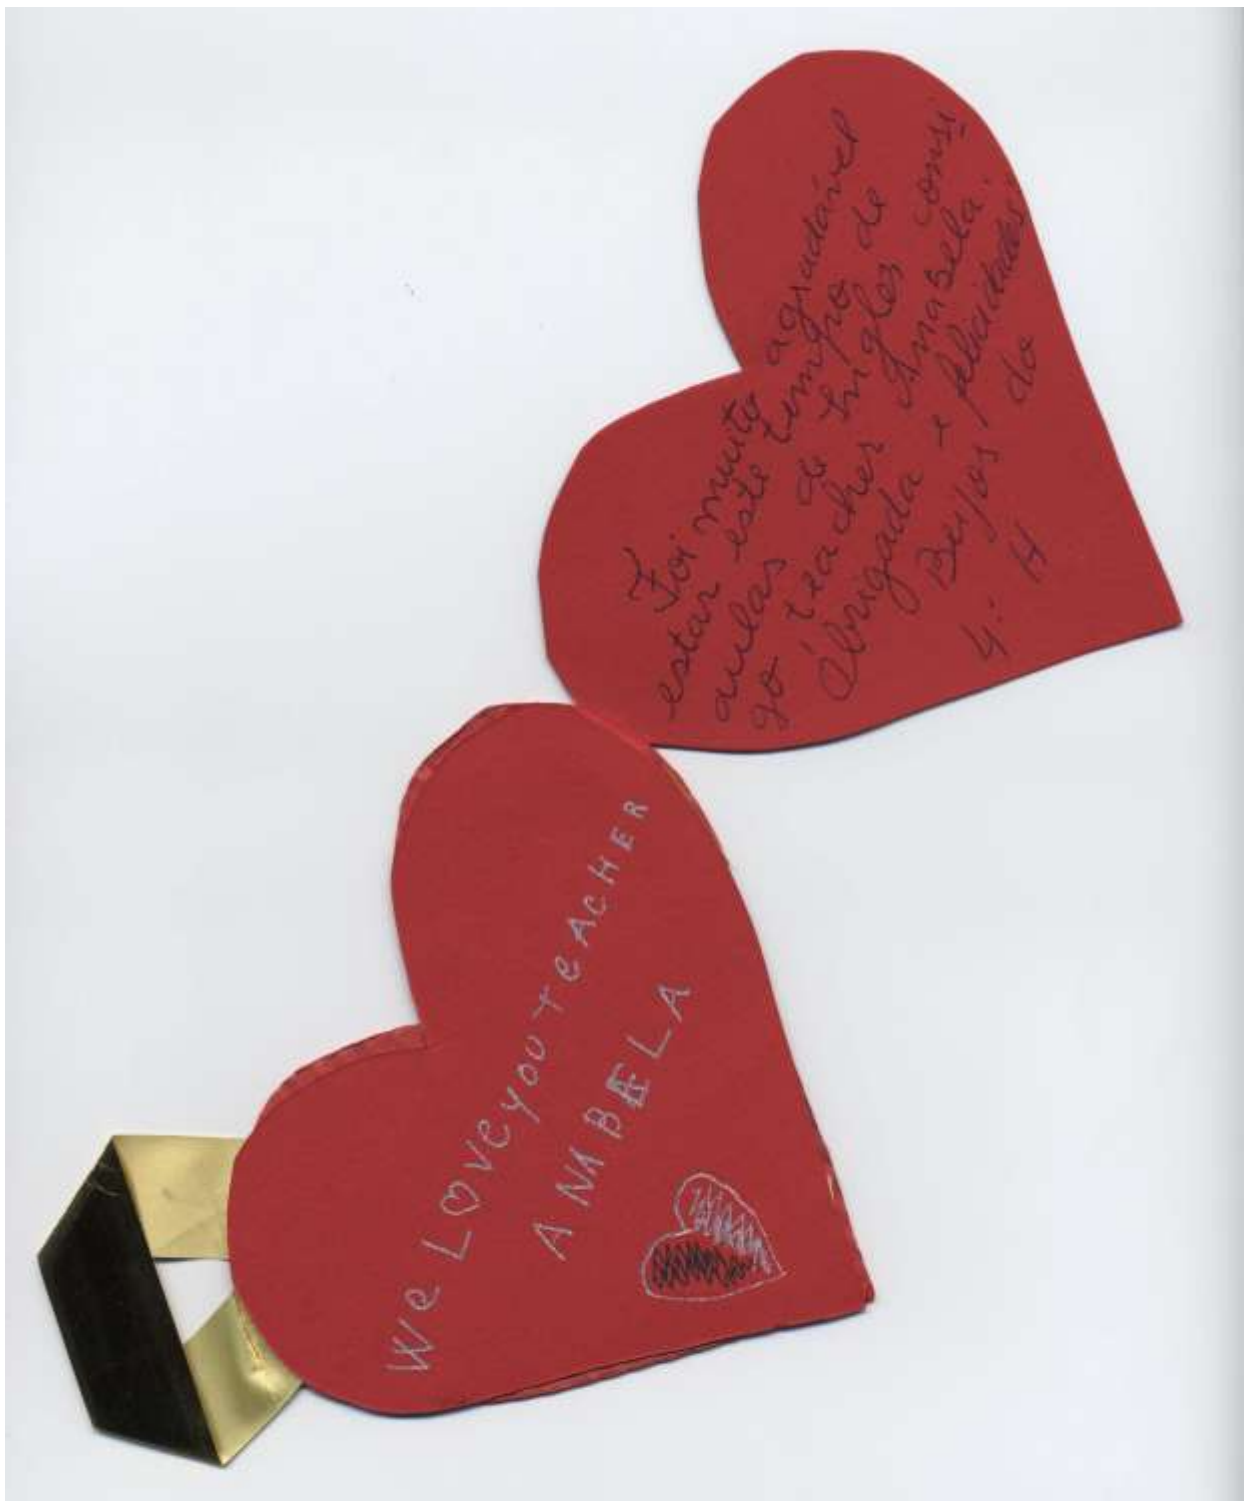 Foi muito agradável
estar este tempo de
aulas de Inglês consi
go teacher Anabela.
Obrigada e felicidades.
Beijos do
4º H
We LOVe YOU TeACHER
ANABELA